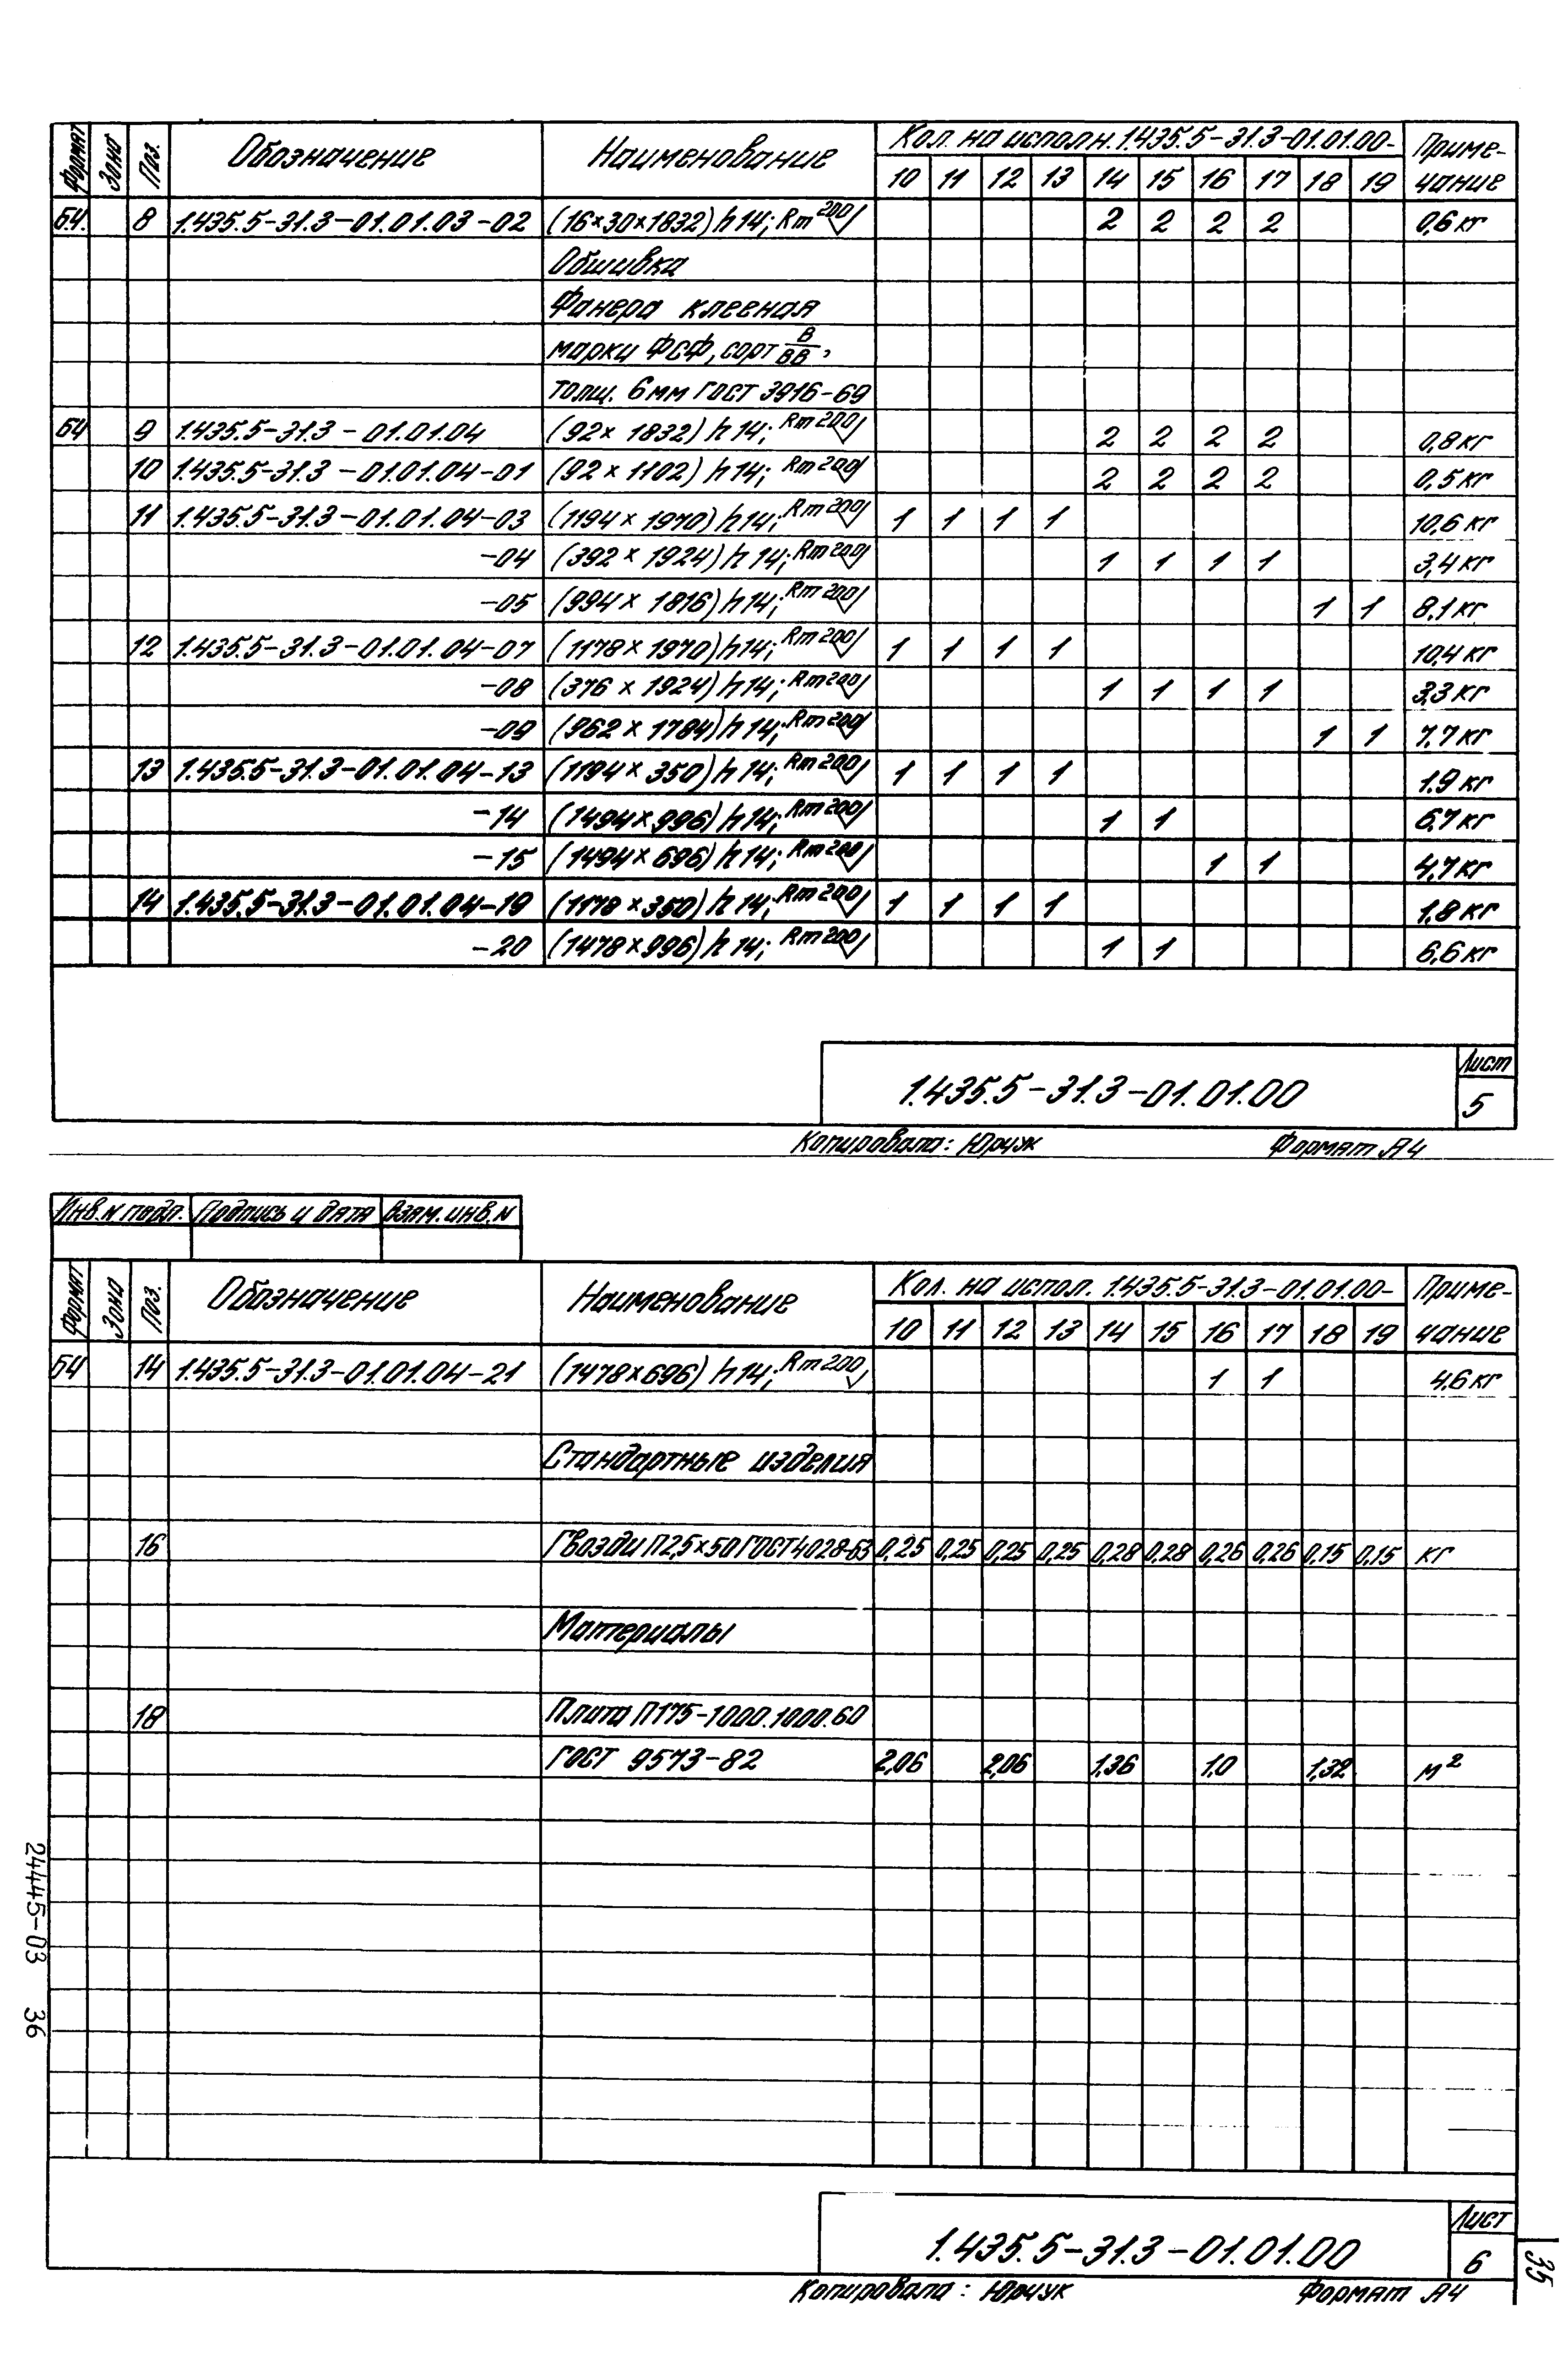 Формат Зона Поз. Обозначение Наименование Кол. на исполн. 1.435.5-31.3-01.01.00- Приме-
10 11 12 13 14 15 16 17 18 19 чание
БЧ. 8 1.435.5-31.3-01.01.03-02 (16×30×1832) h14; Rm 200 2 2 2 2 0,6 кг
Обшивка
Фанера клееная
марки ФСФ, сорт В/ВВ,
толщ. 6мм ГОСТ 3916-69
БЧ 9 1.435.5-31.3-01.01.04 (92×1832) h14; Rm 200 2 2 2 2 0,8 кг
10 1.435.5-31.3-01.01.04-01 (92×1102) h14; Rm 200 2 2 2 2 0,5 кг
11 1.435.5-31.3-01.01.04-03 (1194×1970) h14; Rm 200 1 1 1 1 10,6 кг
-04 (392×1924) h14; Rm 200 1 1 1 1 3,4 кг
-05 (994×1816) h14; Rm 200 1 1 8,1 кг
12 1.435.5-31.3-01.01.04-07 (1178×1970) h14; Rm 200 1 1 1 1 10,4 кг
-08 (376×1924) h14; Rm 200 1 1 1 1 3,3 кг
-09 (962×1784) h14; Rm 200 1 1 7,7 кг
13 1.435.5-31.3-01.01.04-13 (1194×350) h14; Rm 200 1 1 1 1 1,9 кг
-14 (1494×996) h14; Rm 200 1 1 6,7 кг
-15 (1494×696) h14; Rm 200 1 1 4,7 кг
14 1.435.5-31.3-01.01.04-19 (1178×350) h14; Rm 200 1 1 1 1 1,8 кг
-20 (1478×996) h14; Rm 200 1 1 6,6 кг
1.435.5-31.3-01.01.00
Лист
5
Копировала: Юрчук Формат А4
Инв. N подл. Подпись и дата Взам. инв. N
Формат Зона Поз. Обозначение Наименование Кол. на испол. 1.435.5-31.3-01.01.00- Приме-
10 11 12 13 14 15 16 17 18 19 чание
БЧ 14 1.435.5-31.3-01.01.04-21 (1478×696) h14; Rm 200 1 1 4,6 кг
Стандартные изделия
16 Гвозди П2,5×50 ГОСТ 4028-63 0,25 0,25 0,25 0,25 0,28 0,28 0,26 0,26 0,15 0,15 кг
Материалы
18 Плита П175-1000.1000.60
ГОСТ 9573-82 2,06 2,06 1,36 1,0 1,32 м²
1.435.5-31.3-01.01.00
Лист
6
Копировала: Юрчук Формат А4
24445-03 36
35